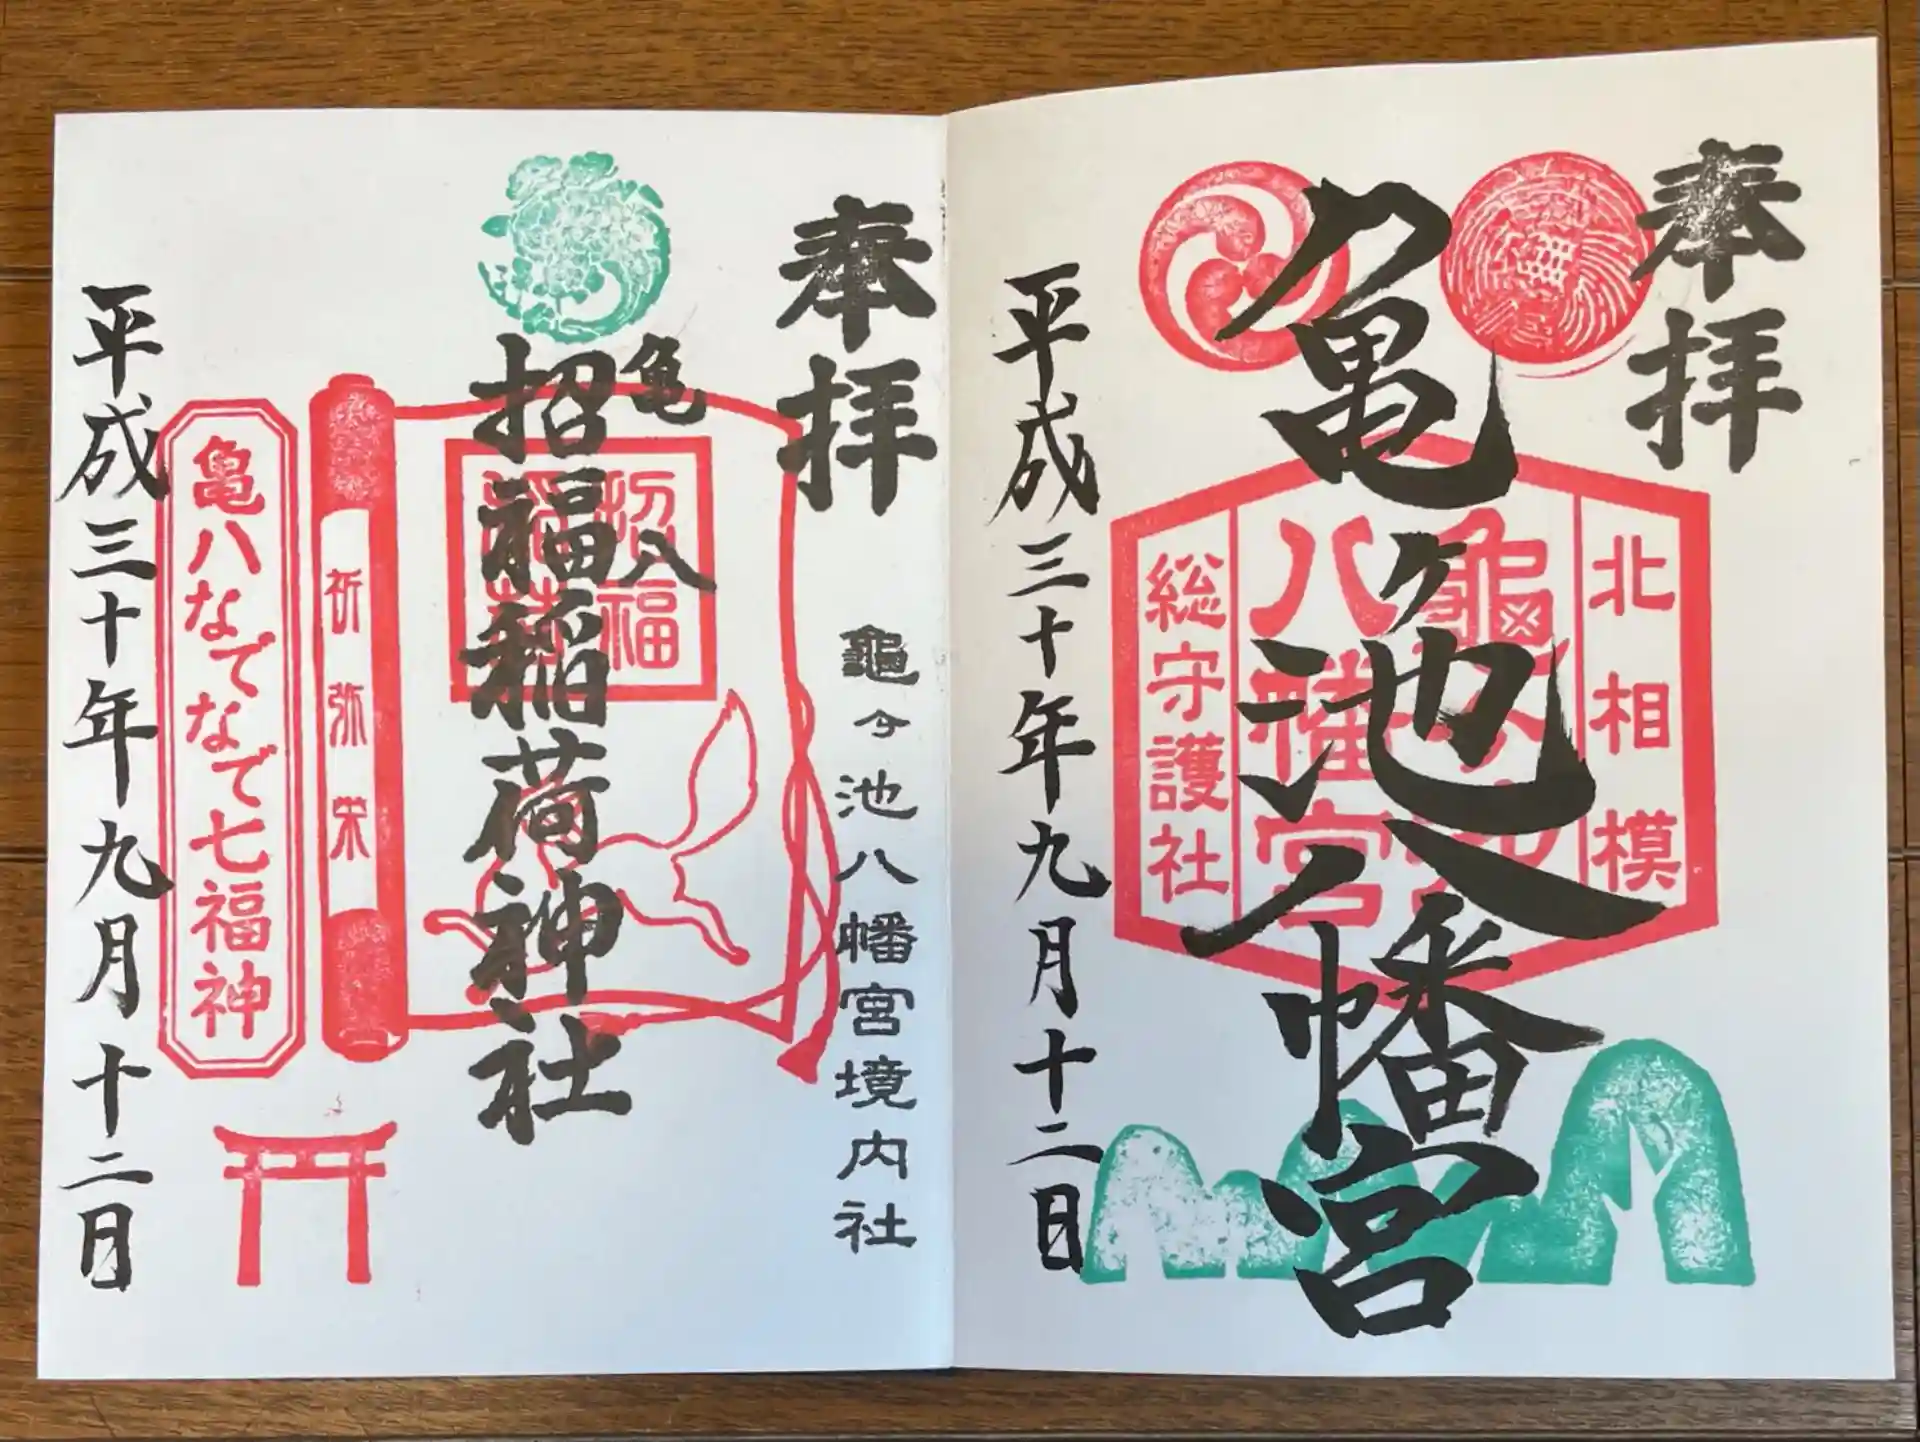 奉拝
亀ヶ池八幡宮
北相模
八幡宮
総守護社
平成三十年九月十二日
奉拝
亀ヶ池八幡宮境内社
亀八
招福稲荷神社
祈弥栄
亀八なでなで七福神
平成三十年九月十二日